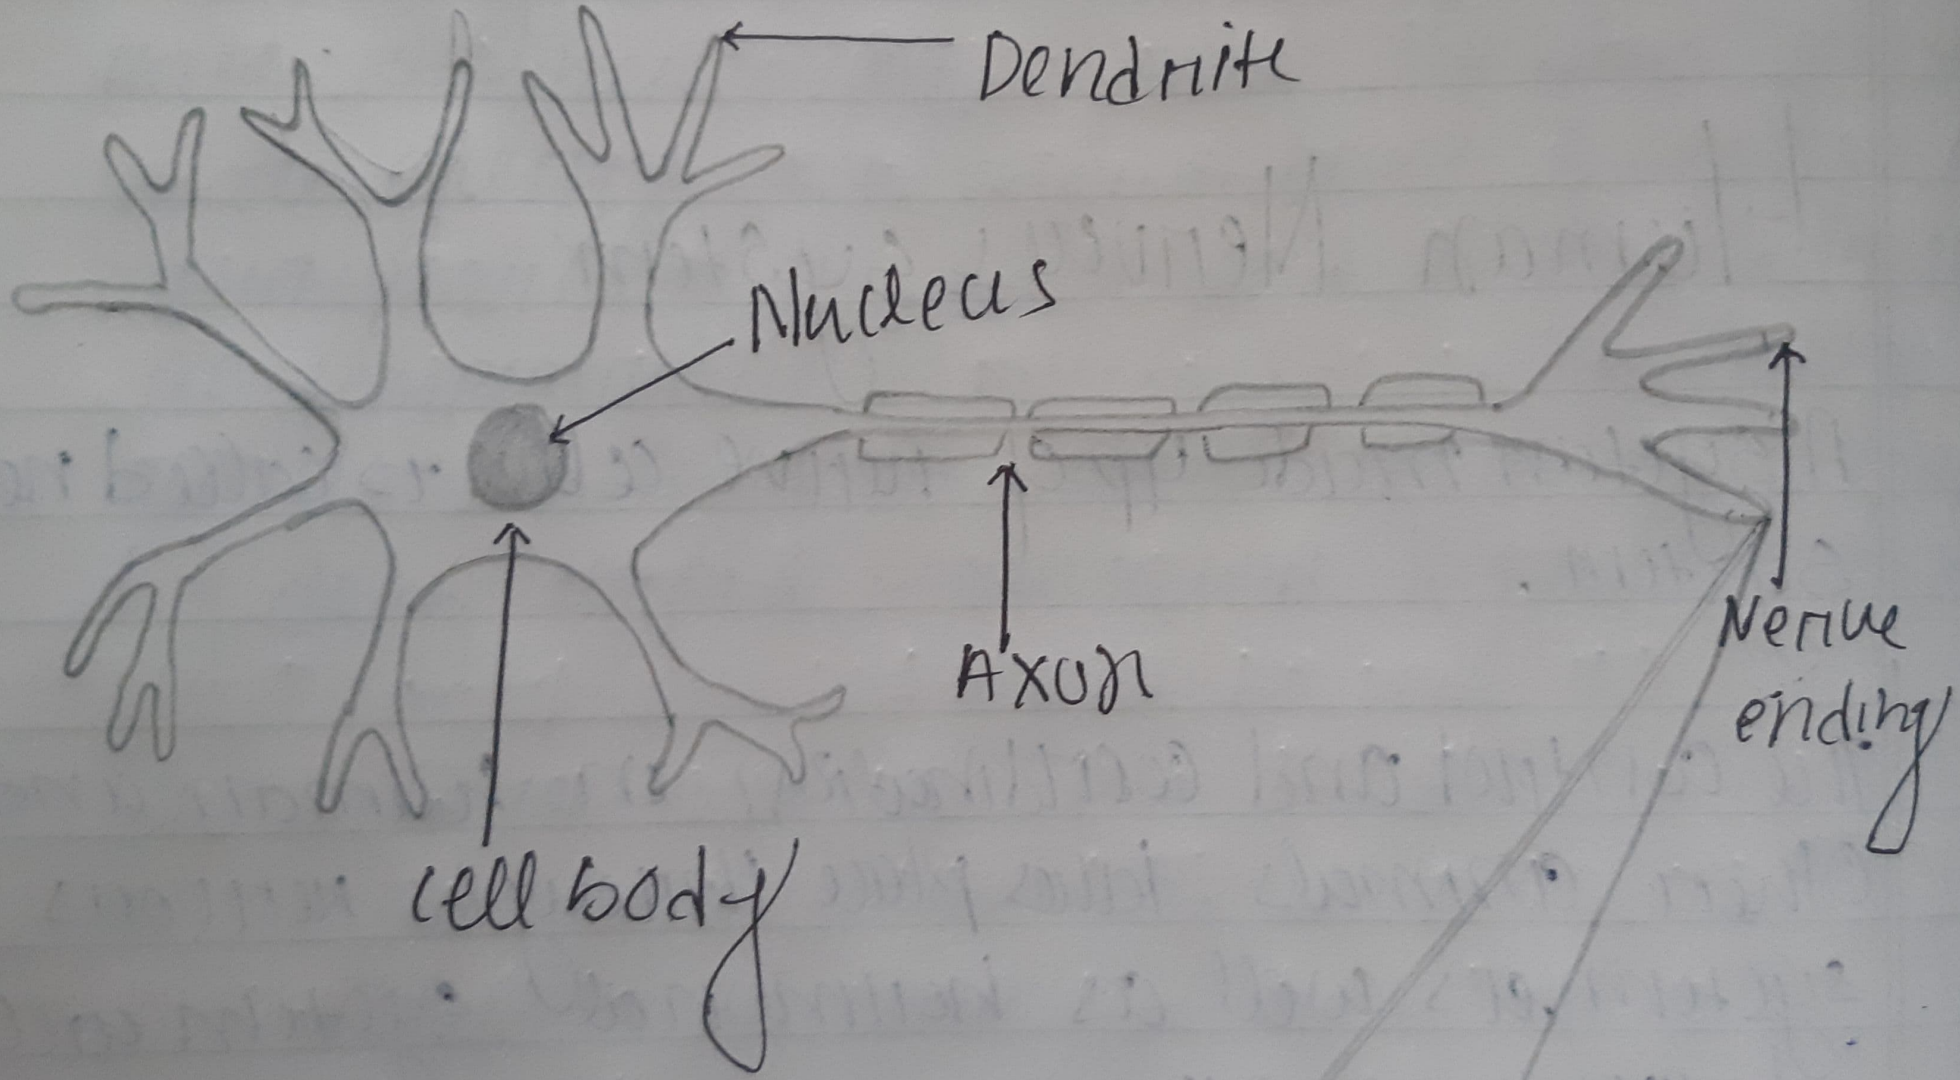 Dendrite
Nucleus
Axon
Nerve
ending
cell body